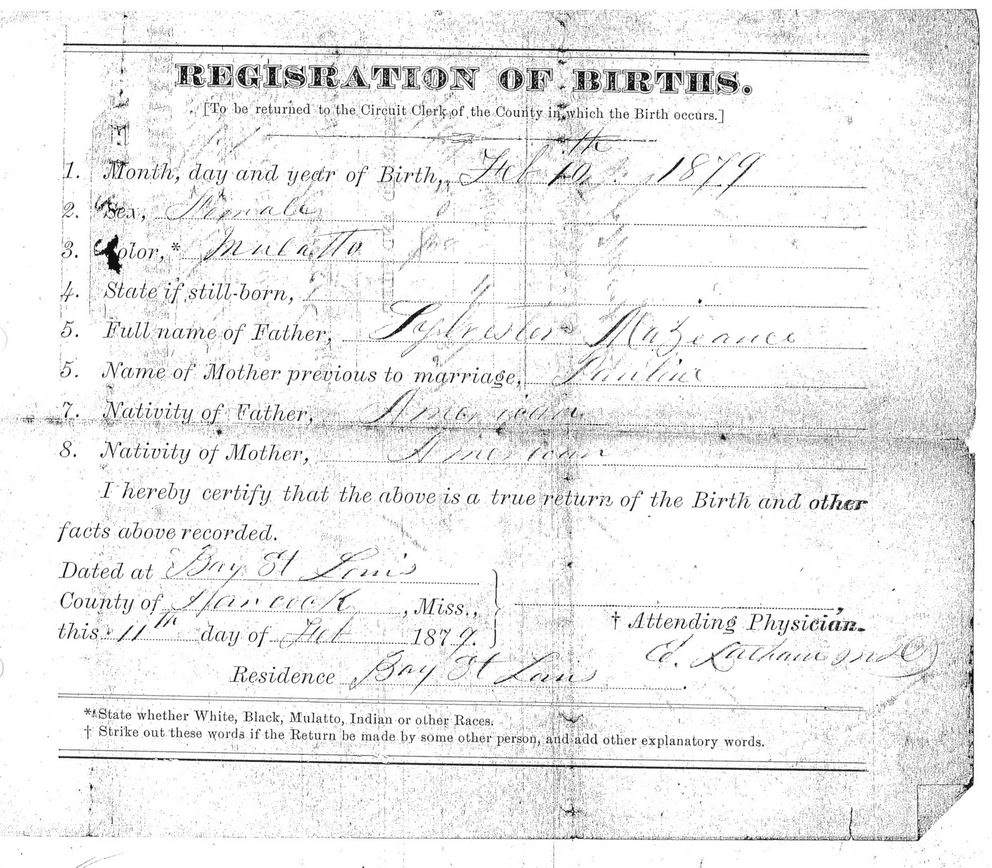 REGISRATION OF BIRTHS.
[To be returned to the Circuit Clerk of the County in which the Birth occurs.]
1. Month, day and year of Birth, Feb 10th 1879
2. Sex, Female
3. Color,* Mulatto
4. State if still-born,
5. Full name of Father, Sylvester
5. Name of Mother previous to marriage, Pauline
7. Nativity of Father, American
8. Nativity of Mother, American
I hereby certify that the above is a true return of the Birth and other
facts above recorded.
Dated at Bay St Louis
County of Hancock, Miss.,
this 11th day of Feb 1879.
† Attending Physician.
Residence Bay St Louis.
*State whether White, Black, Mulatto, Indian or other Races.
† Strike out these words if the Return be made by some other person, and add other explanatory words.